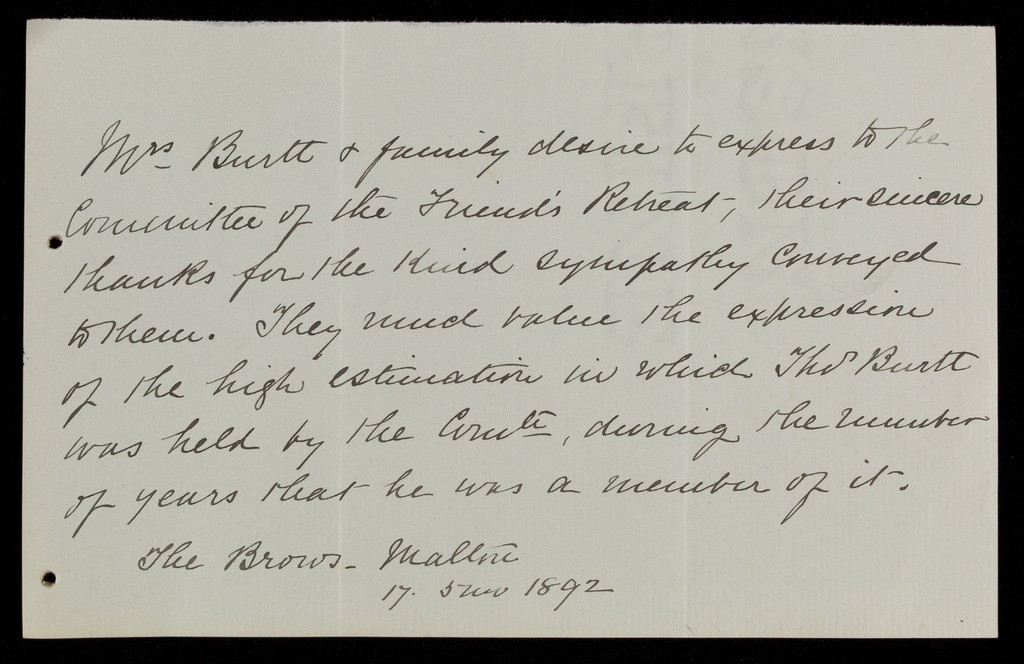 Mrs Burtt & family desire to express to the
Committee of the Friend's Retreat, their sincere
thanks for the kind sympathy conveyed
to them. They much value the expression
of the high estimation in which Thos Burtt
was held by the Comte, during the number
of years that he was a member of it.
The Brows - Malton
17. 5 mo 1892